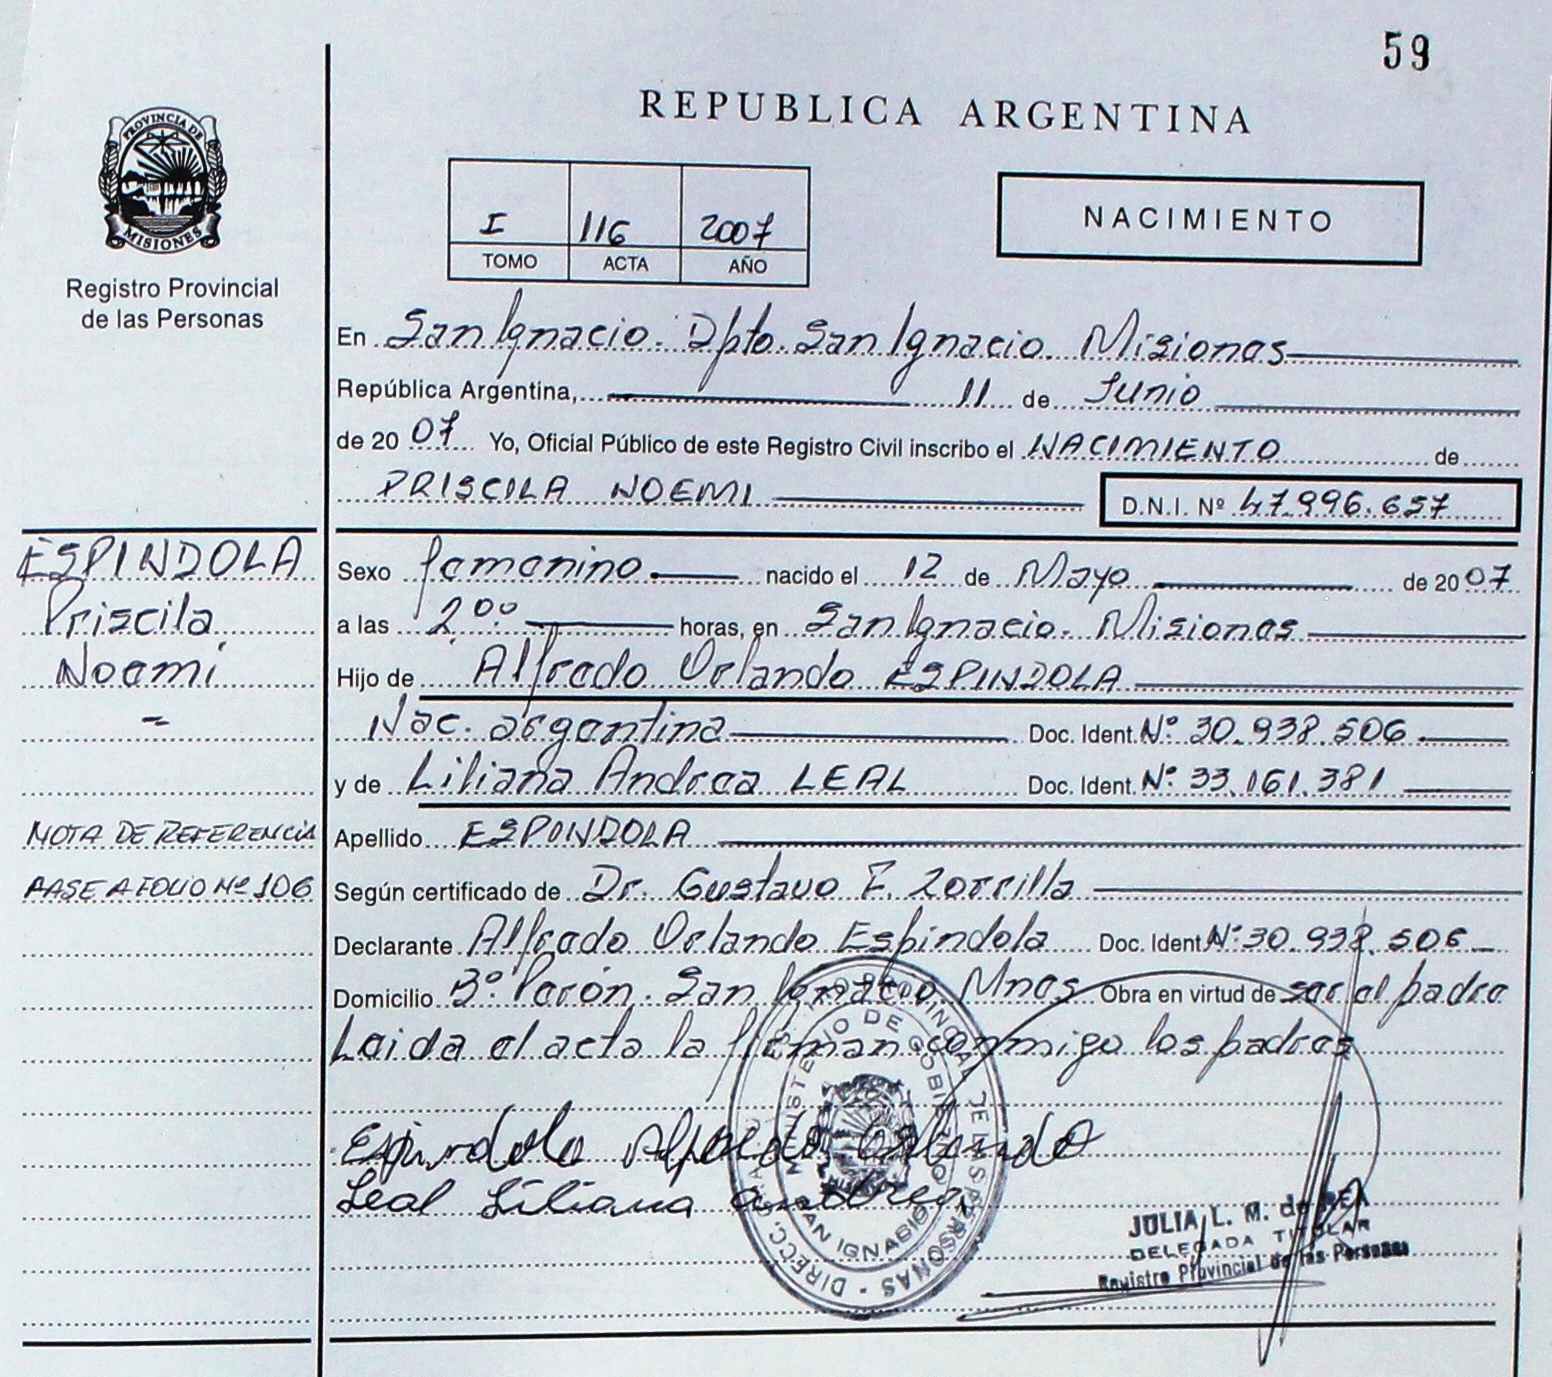 59
REPUBLICA ARGENTINA
PROVINCIA DE
MISIONES
Registro Provincial
de las Personas
I 116 2007
TOMO ACTA AÑO
NACIMIENTO
En San Ignacio. Dpto. San Ignacio. Misiones
República Argentina, 11 de Junio
de 2007 Yo, Oficial Público de este Registro Civil inscribo el NACIMIENTO de
PRISCILA NOEMI D.N.I. Nº 47.996.657
ESPINDOLA
Priscila
Noemi
NOTA DE REFERENCIA
PASE A FOLIO Nº 106
Sexo femenino nacido el 12 de Mayo de 2007
a las 2,00 horas, en San Ignacio. Misiones
Hijo de Alfredo Orlando ESPINDOLA
Nac. argentina Doc. Ident. Nº 30.938.506
y de Liliana Andrea LEAL Doc. Ident. Nº 33.161.381
Apellido ESPINDOLA
Según certificado de Dr. Gustavo E. Zorrilla
Declarante Alfredo Orlando Espindola Doc. Ident. Nº 30.938.506
Domicilio Bº Perón. San Ignacio Mnes Obra en virtud de ser el padre
Leida el acta la firman conmigo los padres
Espindola Alfredo Orlando
Leal Liliana andrea
MINISTERIO DE GOBIERNO
SAN IGNACIO
JULIA L. M. de
DELEGADA TITULAR
Registro Provincial de las Personas